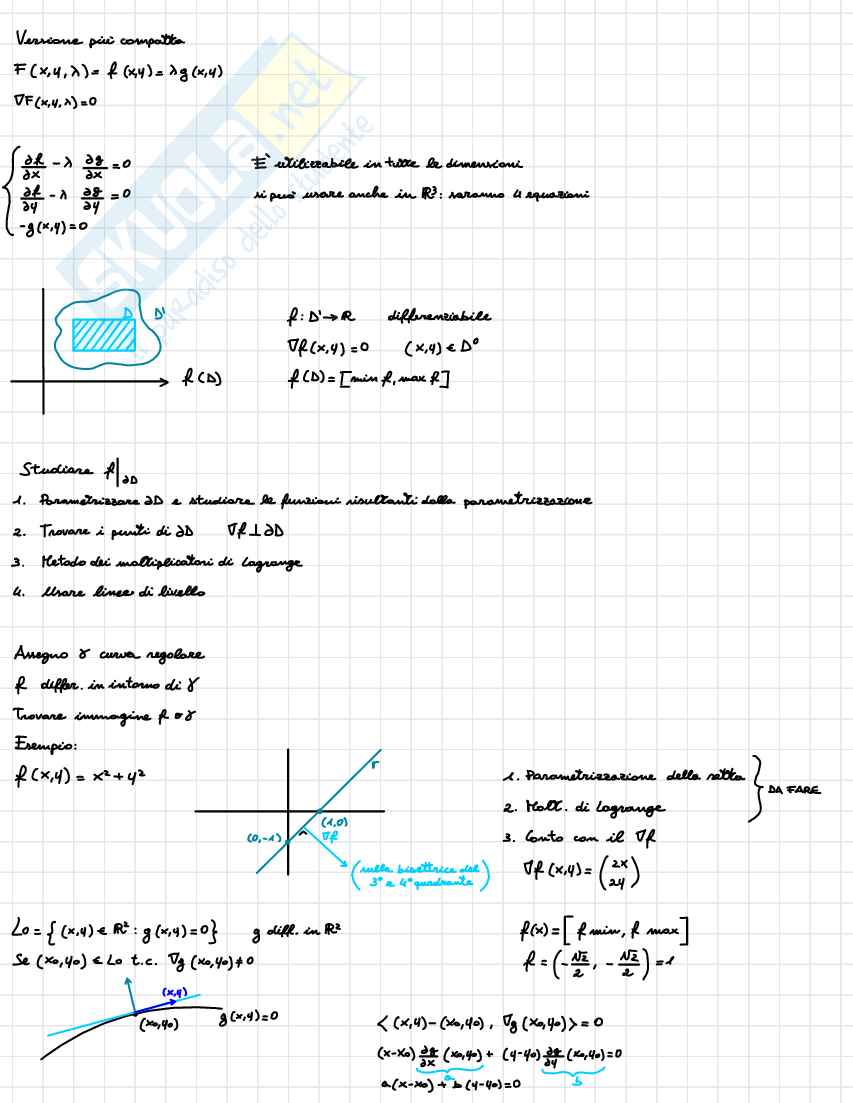 Versione più compatta
F(x,y,λ)= f(x,y)= λg(x,y)
∇F(x,y,λ)=0
∂f/∂x - λ ∂g/∂x = 0
È utilizzabile in tutte le dimensioni
∂f/∂y - λ ∂g/∂y = 0
si può usare anche in ℝ³: saranno 4 equazioni
-g(x,y)=0
SKUOLA.net
il paradiso dello studente
D D'
f: D'→ℝ differenziabile
∇f(x,y)=0 (x,y)∈D°
f(D)
f(D)=[min f, max f]
Studiare f|∂D
1. Parametrizzare ∂D e studiare le funzioni risultanti dalla parametrizzazione
2. Trovare i punti di ∂D ∇f⊥∂D
3. Metodo dei moltiplicatori di Lagrange
4. Usare linee di livello
Assegno γ curva regolare
f differ. in intorno di γ
Trovare immagine f∘γ
Esempio:
f(x,y) = x²+y²
r
(1,0)
(0,-1)
∇f
(sulla bisettrice del
3° e 4° quadrante)
1. Parametrizzazione della retta
2. Molt. di Lagrange
DA FARE
3. Conto con il ∇f
∇f(x,y) = (2x
2y)
L₀ = {(x,y)∈ℝ²: g(x,y)=0} g diff. in ℝ²
f(x)=[f min, f max]
Se (x₀,y₀)∈L₀ t.c. ∇g(x₀,y₀)≠0
f=(-√2/2, -√2/2)=1
(x,y)
(x₀,y₀)
g(x,y)=0
<(x,y)-(x₀,y₀), ∇g(x₀,y₀)>=0
(x-x₀) ∂g/∂x (x₀,y₀) + (y-y₀) ∂g/∂y (x₀,y₀)=0
a b
a(x-x₀)+b(y-y₀)=0